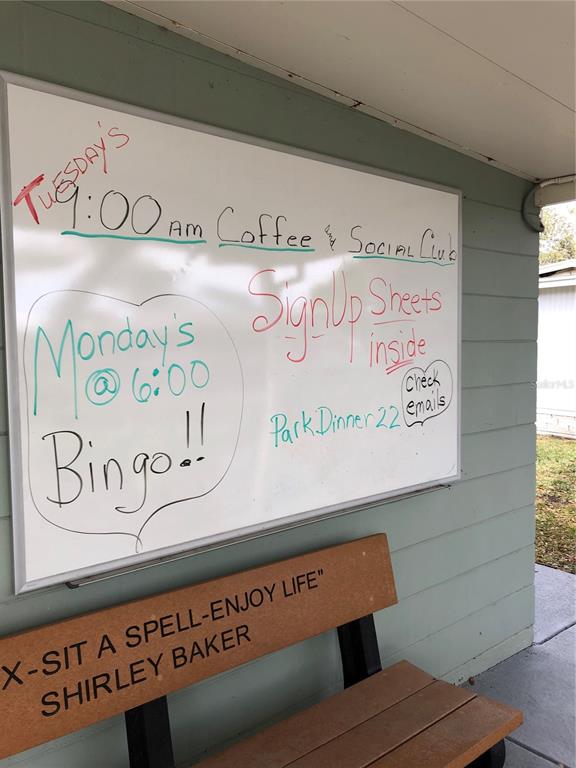 TUESDAY'S
9:00 AM Coffee & SOCIAL Club
SignUp Sheets
inside
Monday's
@ 6:00
Bingo!!
check
emails
Park Dinner 22
X-SIT A SPELL-ENJOY LIFE"
SHIRLEY BAKER